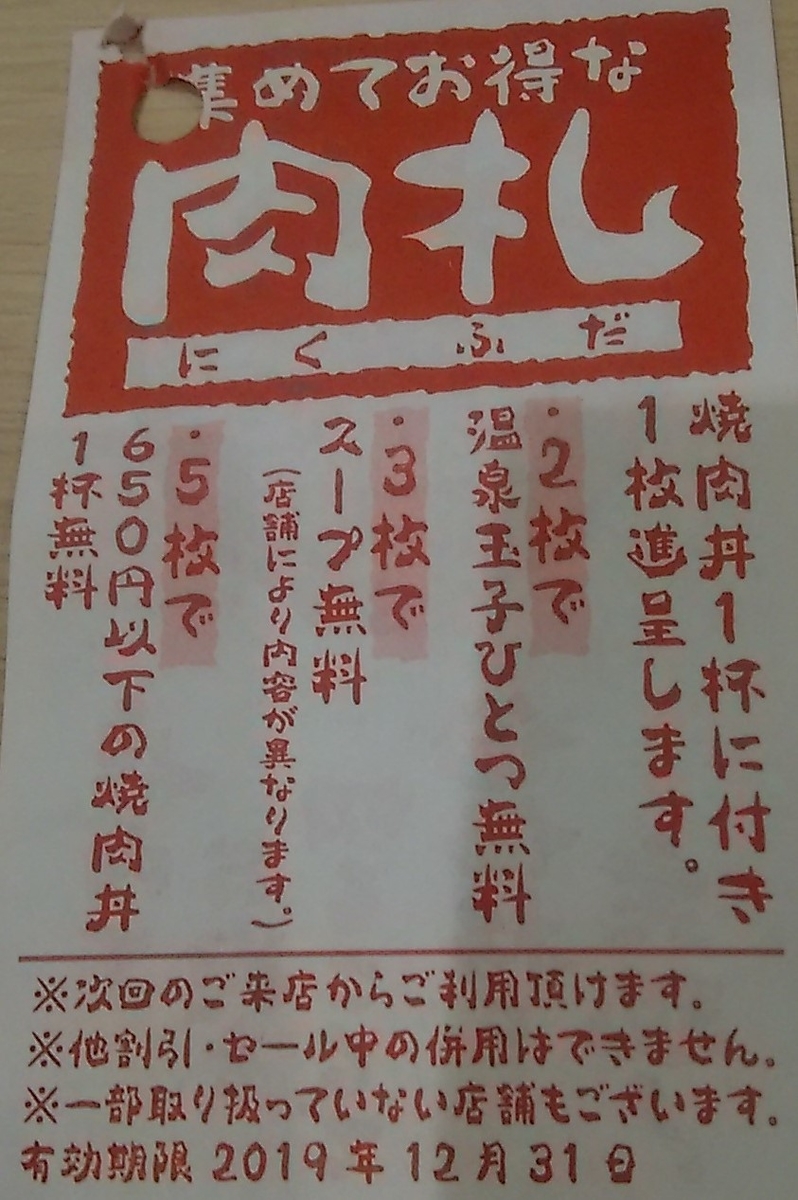 集めてお得な
肉札
にくふだ
焼肉丼1杯に付き
1枚進呈します。
・2枚で
温泉玉子ひとつ無料
・3枚で
スープ無料
(店舗により内容が異なります。)
・5枚で
650円以下の焼肉丼
1杯無料
※次回のご来店からご利用頂けます。
※他割引・セール中の併用はできません。
※一部取り扱っていない店舗もございます。
有効期限 2019年12月31日